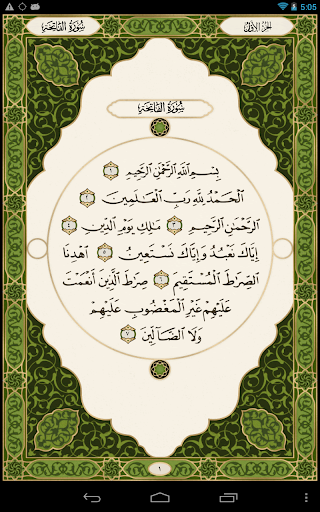 5:05
الجزء الأول
سورة الفاتحة
سُورَةُ الفَاتِحَةِ
بِسْمِ ٱللَّهِ ٱلرَّحْمَٰنِ ٱلرَّحِيمِ ١
ٱلْحَمْدُ لِلَّهِ رَبِّ ٱلْعَٰلَمِينَ ٢
ٱلرَّحْمَٰنِ ٱلرَّحِيمِ ٣ مَٰلِكِ يَوْمِ ٱلدِّينِ ٤
إِيَّاكَ نَعْبُدُ وَإِيَّاكَ نَسْتَعِينُ ٥ ٱهْدِنَا
ٱلصِّرَٰطَ ٱلْمُسْتَقِيمَ ٦ صِرَٰطَ ٱلَّذِينَ أَنْعَمْتَ
عَلَيْهِمْ غَيْرِ ٱلْمَغْضُوبِ عَلَيْهِمْ
وَلَا ٱلضَّآلِّينَ ٧
١